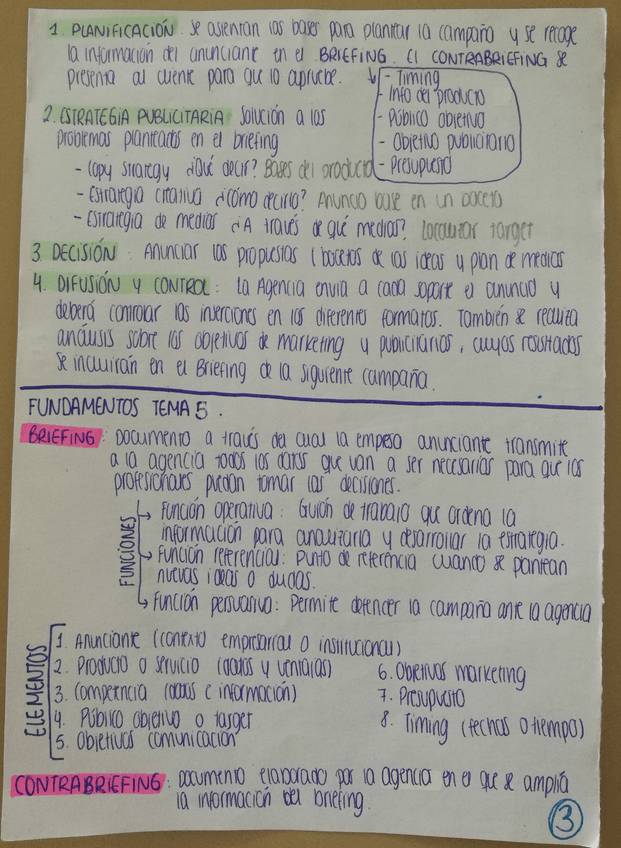 1. PLANIFICACIÓN. Se asientan las bases para plantear la campaña y se recoge
la información del anunciante en el BRIEFING. El CONTRABRIEFING se
presenta al cliente para que lo apruebe.
- Timing
- Info del producto
- Público objetivo
- Objetivo publicitario
- Presupuesto
2. ESTRATEGIA PUBLICITARIA Solución a los
problemas planteados en el briefing
- Copy strategy ¿Qué decir? Bases del producto
- Estrategia creativa ¿Cómo decirlo? Anuncio base en un boceto
- Estrategia de medios ¿A través de qué medios? Localizar target
3. DECISIÓN: Anunciar las propuestas (bocetos de las ideas y plan de medios
4. DIFUSIÓN Y CONTROL: La Agencia envia a cada soporte el anuncio y
deberá controlar las inserciones en los diferentes formatos. También se realiza
análisis sobre los objetivos de marketing y publicitarios, cuyos resultados
se incluirán en el Briefing de la siguiente campaña.
FUNDAMENTOS TEMA 5.
BRIEFING: Documento a través del cual la empesa anunciante transmite
a la agencia todos los datos que van a ser necesarias para que los
profesionales puedan tomar las decisiones.
FUNCIONES
Función operativa: Guión de trabajo que ordena la
información para analizarla y desarrollar la estrategia.
Función referencial: Punto de referencia cuando se plantean
nuevas ideas o dudas.
Función persuasiva: Permite defender la campaña ante la agencia
ELEMENTOS
1. Anunciante (contexto empresarial o institucional)
2. Producto o servicio (datos y ventajas)
3. Competencia (datos e información)
4. Público objetivo o target
5. Objetivos comunicación
6. Objetivos marketing
7. Presupuesto
8. Timing (fechas o tiempo)
CONTRABRIEFING: Documento elaborado por la agencia en el que se amplía
la información del briefing.
3